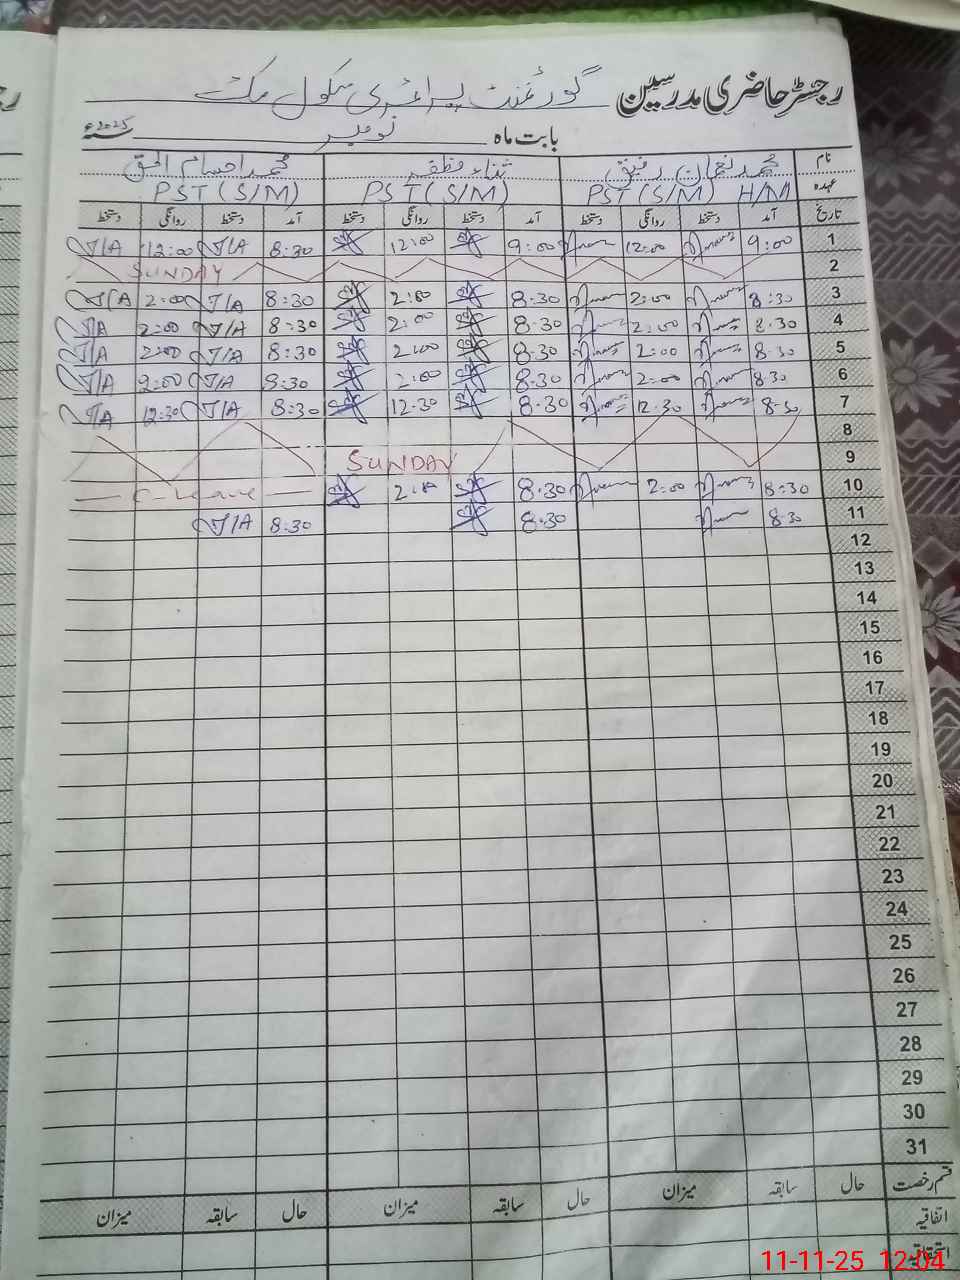 رجسٹر حاضری مدرسین گورنمنٹ پرائمری سکول
بابت ماہ نومبر 2025ء
نام محمد نعمان رفیق ثناء مظفر محمد احسام الحق
عہدہ PST (S/M) H/M PST (S/M) PST (S/M)
تاریخ آمد دستخط روانگی دستخط آمد دستخط روانگی دستخط آمد دستخط روانگی دستخط
1 9:00 12:00 9:00 12:00 8:30 T/A 12:00 T/A
2 SUNDAY
3 8:30 2:00 8:30 2:00 8:30 T/A 2:00 T/A
4 8:30 2:00 8:30 2:00 8:30 T/A 2:00 T/A
5 8:30 2:00 8:30 2:00 8:30 T/A 2:00 T/A
6 8:30 2:00 8:30 2:00 T/A T/A
7 8:30 12:30 8:30 12:30 8:30 T/A 12:30 T/A
8
9 SUNDAY
10 8:30 2:00 8:30 C-Leave
11 8:30 8:30 8:30 T/A
12
13
14
15
16
17
18
19
20
21
22
23
24
25
26
27
28
29
30
31
قسم رخصت حال سابقہ میزان حال سابقہ میزان حال سابقہ میزان
اتفاقیہ
استحقاقیہ
11-11-25 12:04